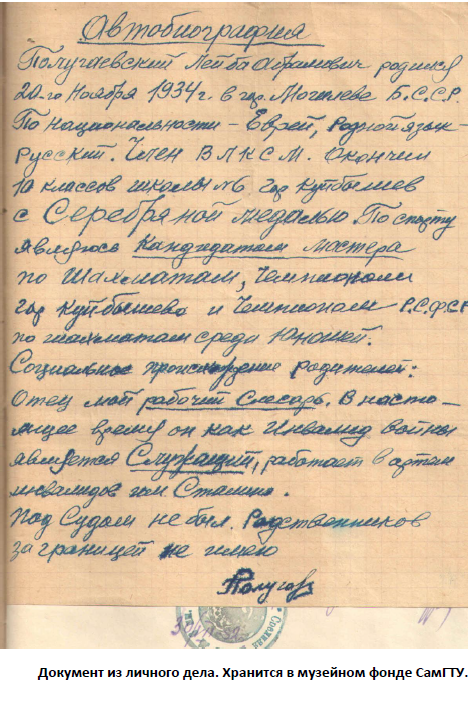 Автобиография
Полугаевский Лейба Абрамович родился
20-го Ноября 1934 г. в гор. Могилеве Б.С.С.Р.
По национальности – Еврей, Родной язык –
Русский. Член ВЛКСМ. Окончил
10 классов школы № 6 гор Куйбышев
с Серебряной медалью. По спорту
являюсь Кандидатом мастера
по шахматам, Чемпионом
гор Куйбышева и Чемпионом Р.С.Ф.С.Р
по шахматам среди Юношей.
Социальное происхождение родителей:
Отец мой рабочий Слесарь. В насто–
ящее время он как Инвалид войны
является Служащий, работает в артели
инвалидов им Сталина.
Под Судом не был. Родственников
за границей не имею
Полугаев
Документ из личного дела. Хранится в музейном фонде СамГТУ.